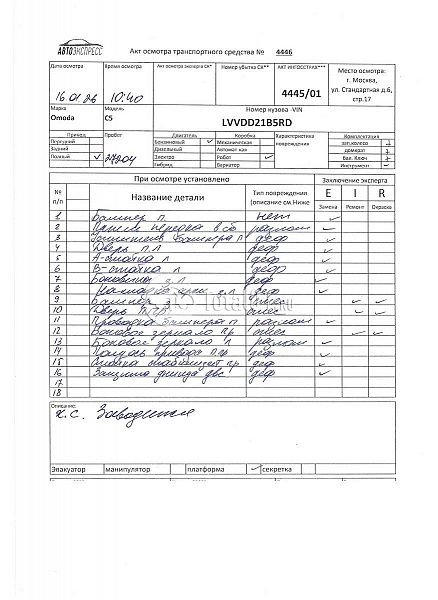 АВТОЭКСПРЕСС
Акт осмотра транспортного средства № 4446
Дата осмотра
Время осмотра
Акт осмотра эксперта СК*
Номер убытка СК**
АКТ ИНГОССТРАХ***
Место осмотра:
г. Москва,
ул. Стандартная д.6,
стр.17
16.01.26
10:40
4445/01
Марка
Модель
Номер кузова -VIN
Omoda
C5
LVVDD21B5RD
Привод
Пробег
Двигатель
Коробка
Характеристика
повреждения
Передний
Бензиновый
Механическая
зап.колесо
Задний
Дизельный
Автомат кая
домкрат
Полный
Электро
Робот
Бал. Ключ
Гибрид
Вариатор
Инструмент
При осмотре установлено
Заключение эксперта
№
п/п
Название детали
Тип повреждения
(описание см.Ниже
E I R
Замена Ремонт Окраска
1 Бампер п. нет
2 Панель передка в сб разлом
3 Усилитель бампера п деф
4 Дверь п.л деф
5 А-стойка л деф
6 В-стойка л деф
7 Боковина л деф
8 Накладка л деф
9 Бампер
10 Дверь
11 Проводка бампера п разлом
12 Боковое зеркало пр
13 Боковое зеркало л разлом
14 Полуось привода п.пр деф
15 Стойка стабилизат пр деф
16 Защита днища двс деф
17
18
Описание:
х.с. Заводится
Эвакуатор манипулятор платформа секретка